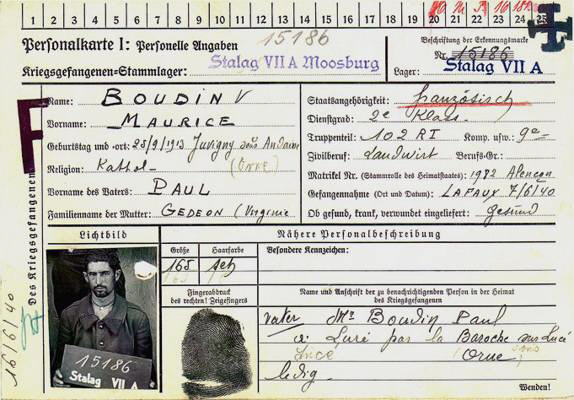 1 2 3 4 5 6 7 8 9 10 11 12 13 14 15 16 17 18 19 20 21 22 23 24 25
Personalkarte I: Personelle Angaben
15186
Beschriftung der Erkennungsmarke
Nr. 15186
Kriegsgefangenen=Stammlager: Stalag VII A Moosburg
Lager: Stalag VII A
F
Des Kriegsgefangenen
16/6/40
Name: BOUDIN V
Vorname: MAURICE
Geburtstag und =ort: 25/9/1913 Juvigny sous Andaine
Religion: Kathol- (Orne)
Vorname des Vaters: PAUL
Familienname der Mutter: GEDEON (Virginie
Staatsangehörigkeit: französisch
Dienstgrad: 2e Klass.
Truppenteil: 102 RI Komp. usw.: 9e
Zivilberuf: Landwirt Berufs=Gr.:
Matrikel Nr. (Stammrolle des Heimatstaates) 1982 Alençon
Gefangennahme (Ort und Datum): LAFAUX 7/6/40
Ob gesund, krank, verwundet eingeliefert: gesund
Lichtbild
Nähere Personalbeschreibung
Größe Haarfarbe
165 sch
Besondere Kennzeichen:
Fingerabdruck
des rechten! Zeigefingers
Name und Anschrift der zu benachrichtigenden Person in der Heimat
des Kriegsgefangenen
Vater Mr Boudin Paul
à Lucé par la Baroche sous Lucé
Lucé (Orne)
ledig.
15186
Stalag VII A
Wenden!